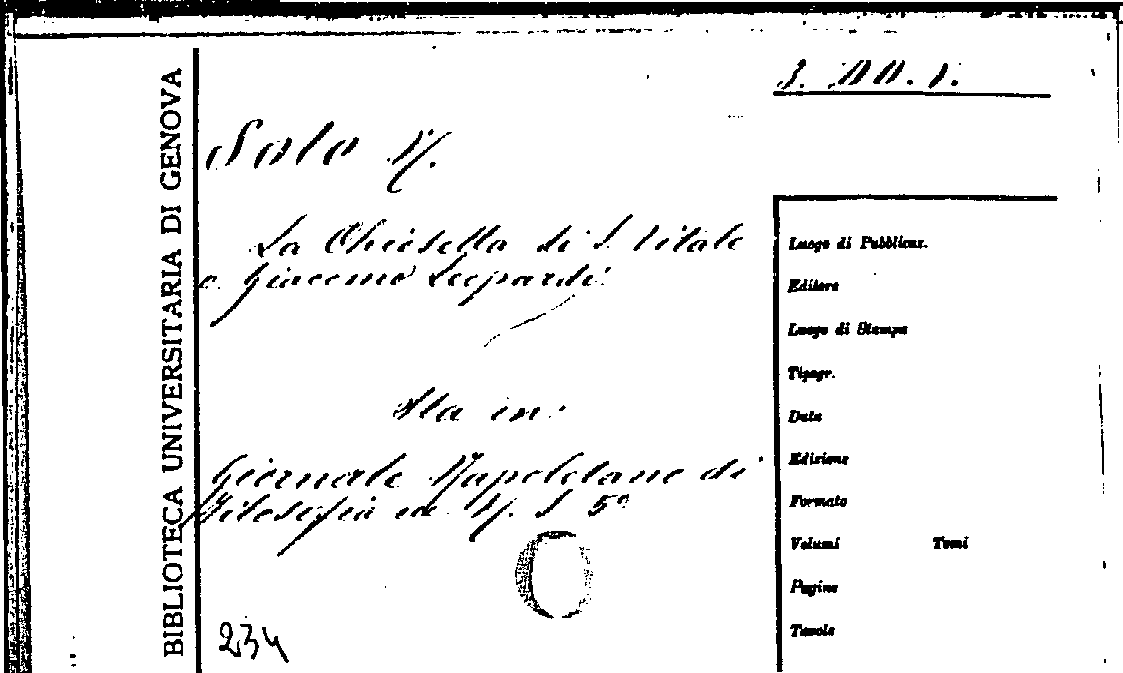 BIBLIOTECA UNIVERSITARIA DI GENOVA
3. AA. 1.
Solo V.
La Chiesetta di S. Vitale
e Giacomo Leopardi
Sta in:
Giornale Napoletano di
Filosofia ec. V. S 5º
C
234
Luogo di Pubblicaz.
Editore
Luogo di Stampa
Tipogr.
Data
Edizione
Formato
Volumi Tomi
Pagine
Tavole